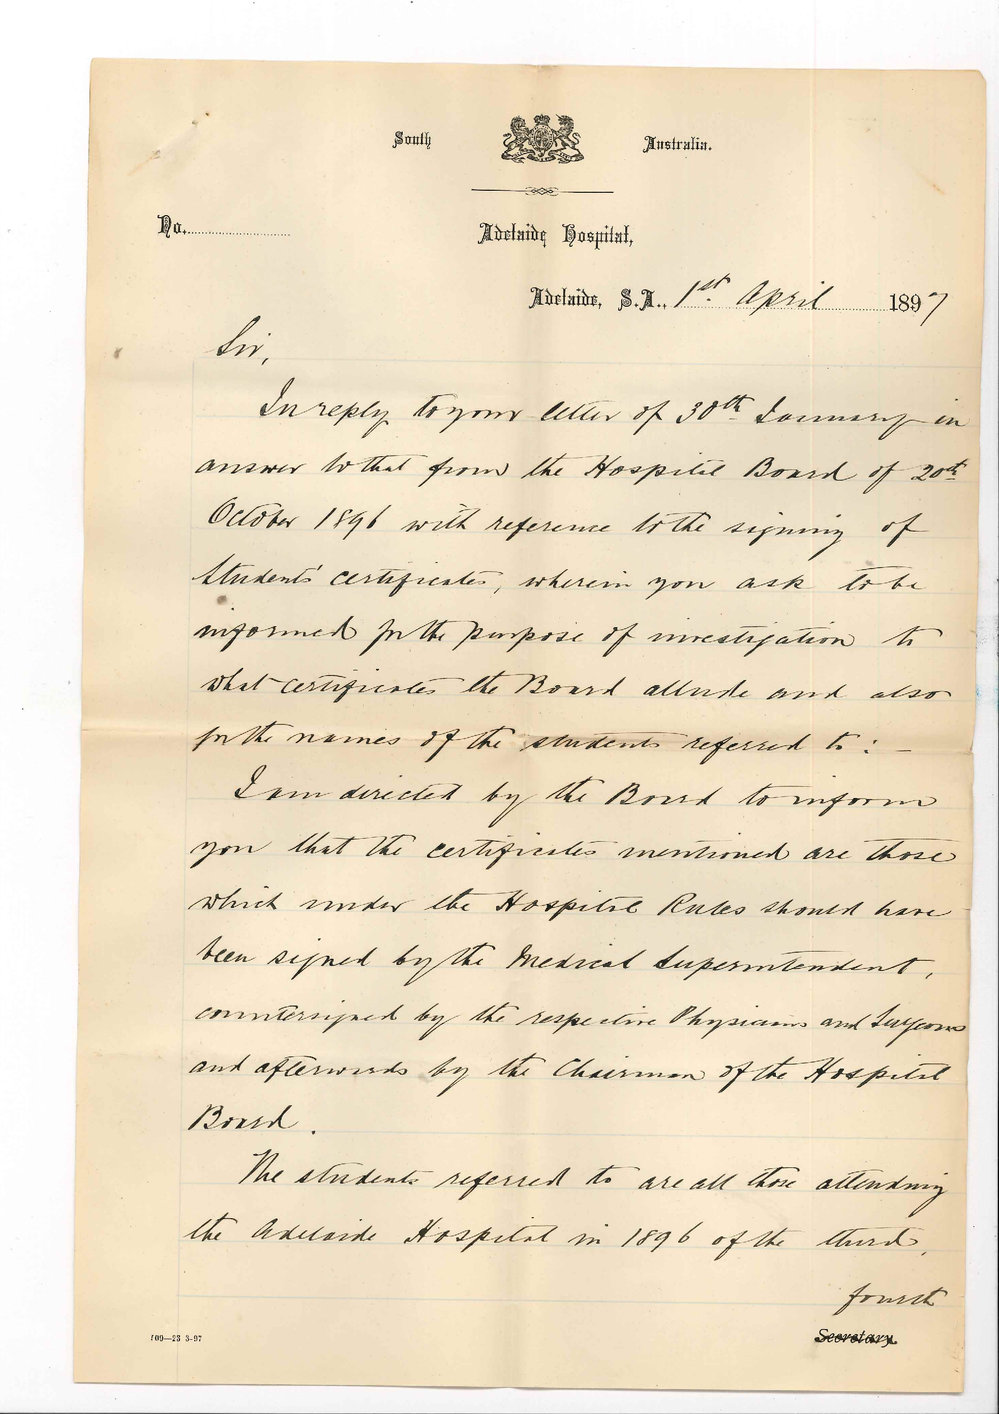 South Australia.
No.
Adelaide Hospital,
Adelaide, S.A., 1st. April 1897
Sir,
In reply to your letter of 30th January in
answer to that from the Hospital Board of 20th
October 1896 with reference to the signing of
Students' certificates, wherein you ask to be
informed for the purpose of investigation to
what certificates the Board allude and also
for the names of the students referred to: —
I am directed by the Board to inform
you that the certificates mentioned are those
which under the Hospital Rules should have
been signed by the Medical Superintendent,
countersigned by the respective Physicians and Surgeons
and afterwards by the Chairman of the Hospital
Board.
The students referred to are all those attending
the Adelaide Hospital in 1896 of the third,
fourth
Secretary.
109—25 3-97